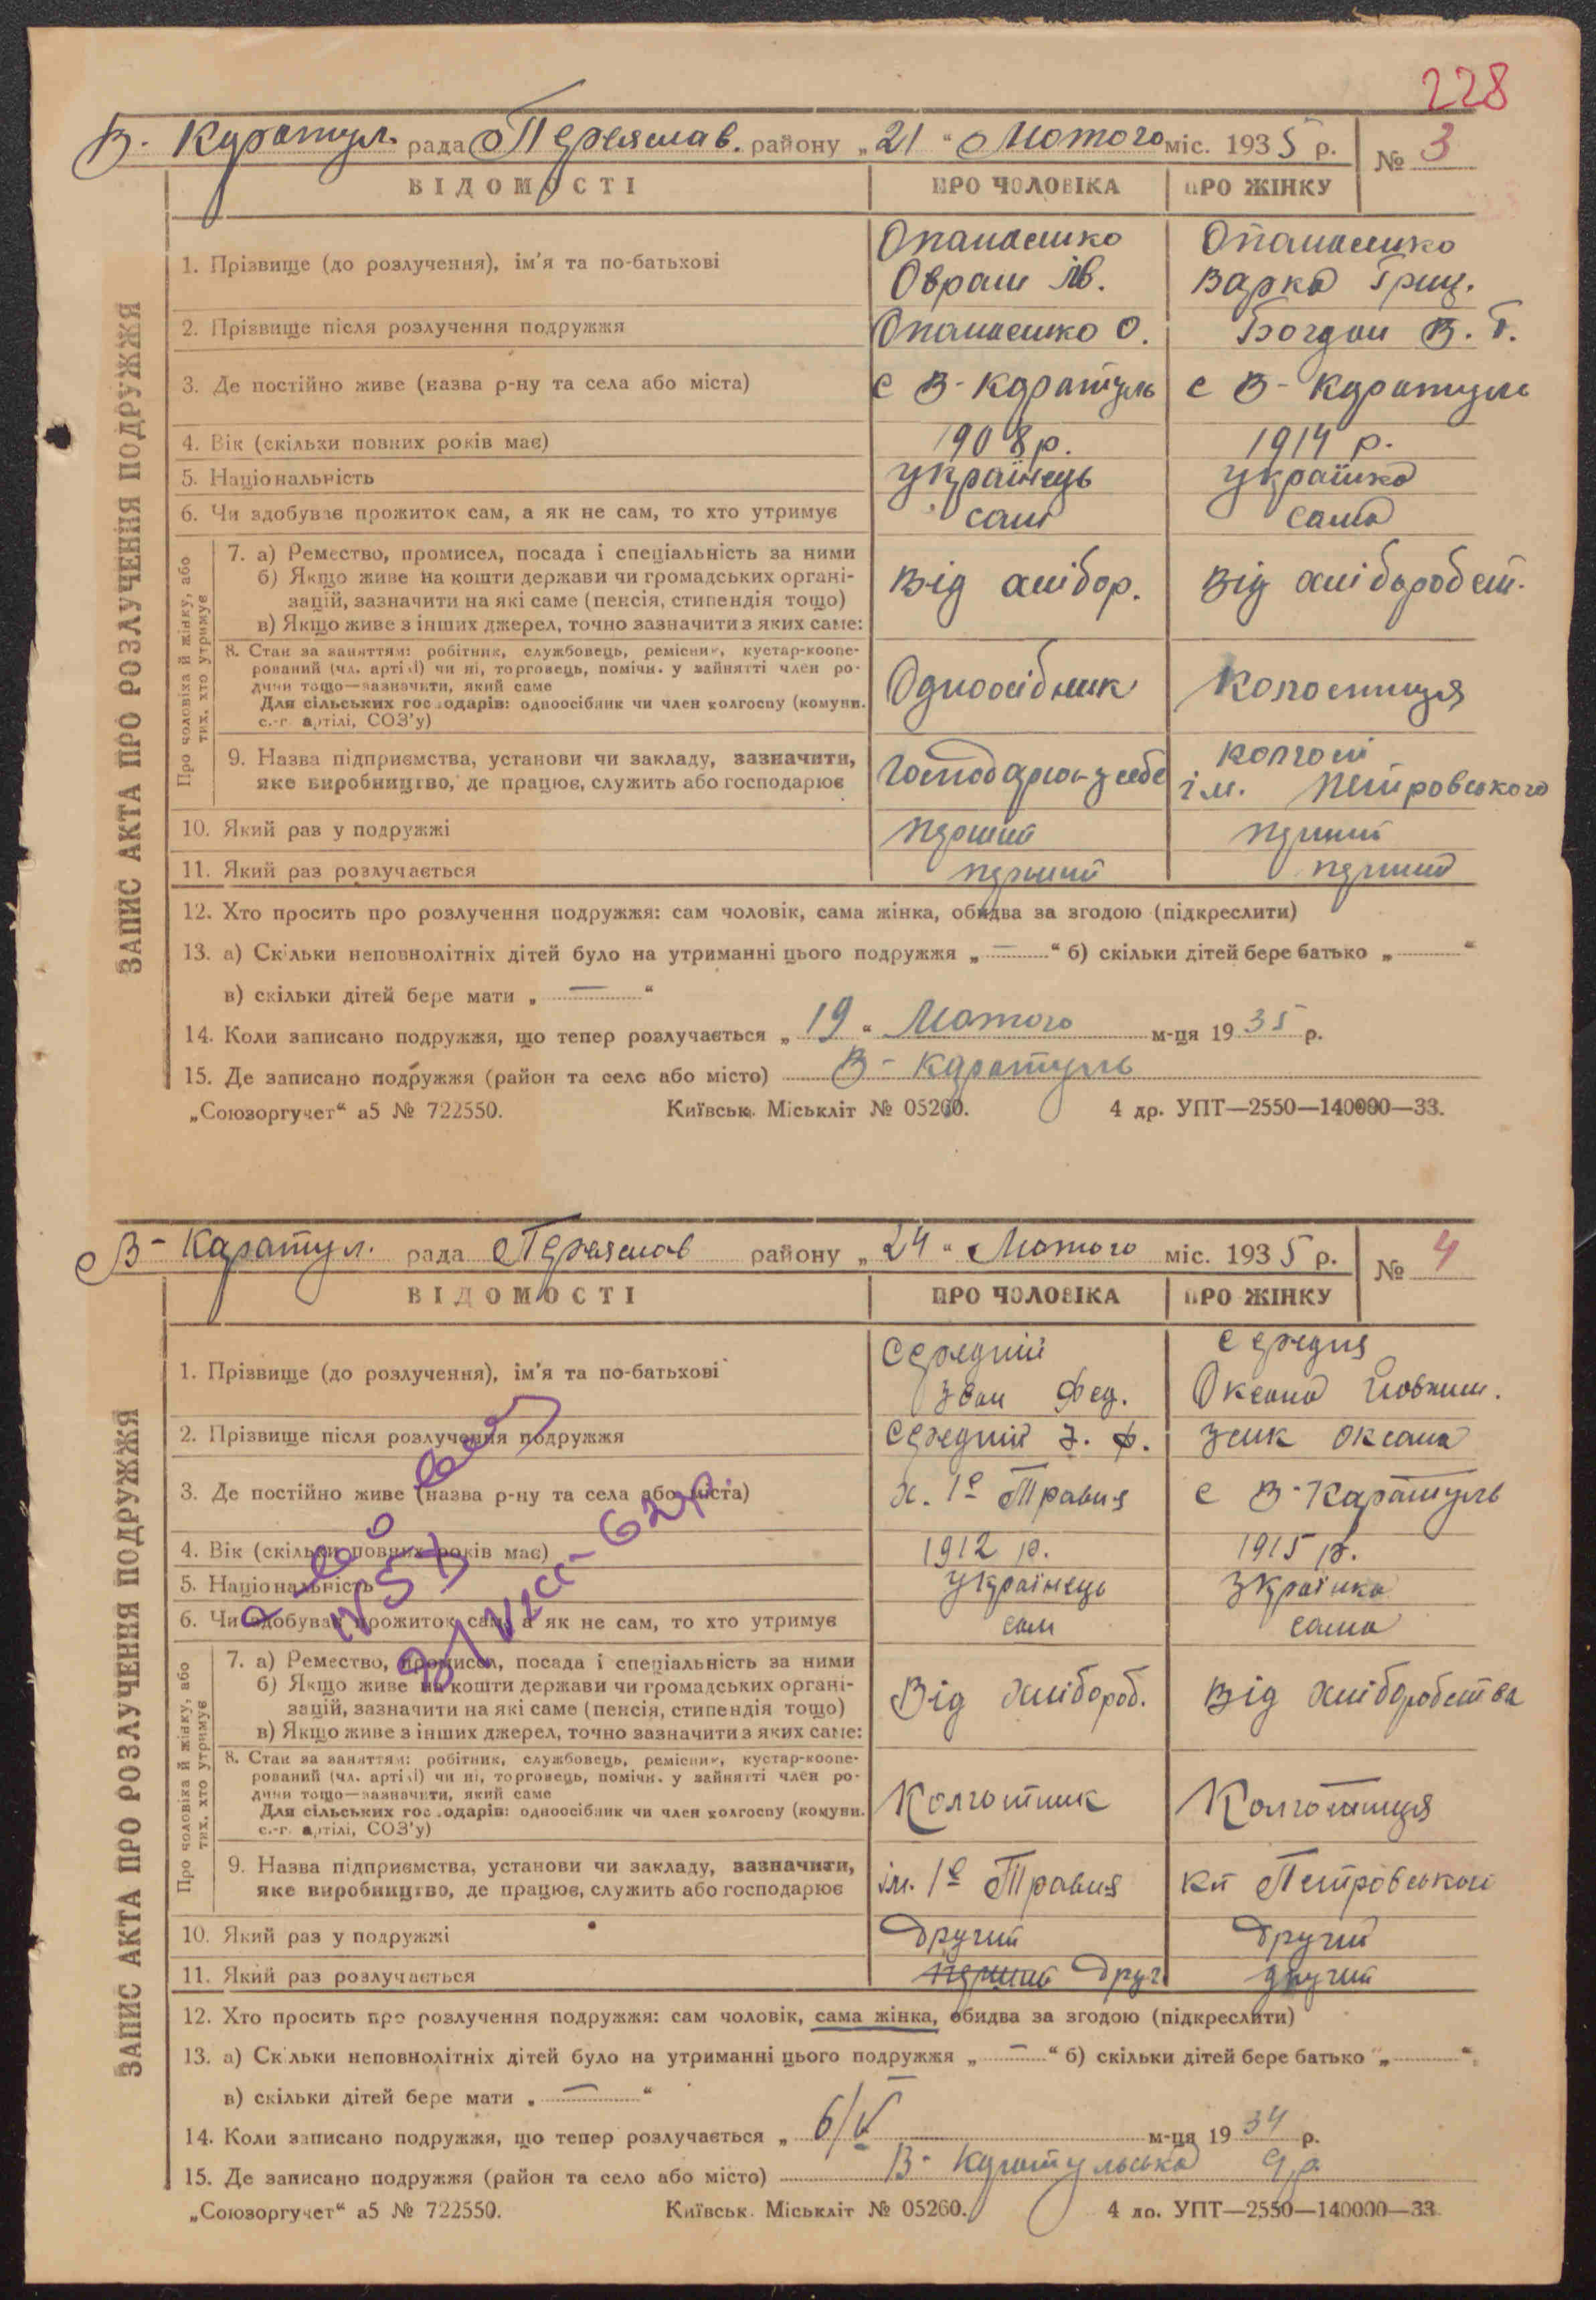 228
В. Каратул. рада Переяслав. району „21“ Лютого міс. 1935 р. № 3
ВІДОМОСТІ ПРО ЧОЛОВІКА ПРО ЖІНКУ
ЗАПИС АКТА ПРО РОЗЛУЧЕННЯ ПОДРУЖЖЯ
1. Прізвище (до розлучення), ім'я та по-батькові
Опанасенко Опанасенко
Оврам Ів. Варка Гриц.
2. Прізвище після розлучення подружжя Опанасенко О. Богдан В. Г.
3. Де постійно живе (назва р-ну та села або міста) с В-Каратуль с В-Каратуль
4. Вік (скільки повних років має) 1908 р. 1914 р.
5. Національність українець українка
6. Чи здобуває прожиток сам, а як не сам, то хто утримує сам сама
Про чоловіка й жінку, або
тих, хто утримує
7. а) Ремество, промисел, посада і спеціальність за ними
б) Якщо живе на кошти держави чи громадських органі-
зацій, зазначити на які саме (пенсія, стипендія тощо)
в) Якщо живе з інших джерел, точно зазначити з яких саме:
Від хлібор. Від хліборобст.
8. Стан за заняттям: робітник, службовець, ремісник, кустар-коопе-
рований (чл. артілі) чи ні, торговець, помічн. у зайнятті член ро-
дини тощо—зазначити, який саме
Для сільських господарів: одноосібник чи член колгоспу (комуни.
с.-г. артілі, СОЗ'у)
Одноосібник Колгоспниця
9. Назва підприємства, установи чи закладу, зазначити,
яке виробництво, де працює, служить або господарює
Господарює у себе колгосп
ім. Петровського
10. Який раз у подружжі перший перший
11. Який раз розлучається перший перший
12. Хто просить про розлучення подружжя: сам чоловік, сама жінка, обидва за згодою (підкреслити)
13. а) Скільки неповнолітніх дітей було на утриманні цього подружжя „ — “ б) скільки дітей бере батько „ “
в) скільки дітей бере мати „ — “
14. Коли записано подружжя, що тепер розлучається „ 19 “ Лютого м-ця 1935 р.
15. Де записано подружжя (район та село або місто) В-Каратуль
„Союзоргучет“ а5 № 722550. Київськ. Міськліт № 05260. 4 др. УПТ—2550—140000—33.
В-Каратул. рада Переяслав району „24“ Лютого міс. 1935 р. № 4
ВІДОМОСТІ ПРО ЧОЛОВІКА ПРО ЖІНКУ
ЗАПИС АКТА ПРО РОЗЛУЧЕННЯ ПОДРУЖЖЯ
1. Прізвище (до розлучення), ім'я та по-батькові
Середній Середня
Іван Фед. Оксана
2. Прізвище після розлучення подружжя Середній І. Ф. Оксана
3. Де постійно живе (назва р-ну та села або міста) х. 1е Травня с В-Каратуль
4. Вік (скільки повних років має) 1912 р. 1915 р.
5. Національність українець українка
6. Чи здобуває прожиток сам, а як не сам, то хто утримує сам сама
№ 57
Про чоловіка й жінку, або
тих, хто утримує
7. а) Ремество, промисел, посада і спеціальність за ними
б) Якщо живе на кошти держави чи громадських органі-
зацій, зазначити на які саме (пенсія, стипендія тощо)
в) Якщо живе з інших джерел, точно зазначити з яких саме:
Від хлібороб. Від хліборобства
8. Стан за заняттям: робітник, службовець, ремісник, кустар-коопе-
рований (чл. артілі) чи ні, торговець, помічн. у зайнятті член ро-
дини тощо—зазначити, який саме
Для сільських господарів: одноосібник чи член колгоспу (комуни.
с.-г. артілі, СОЗ'у)
Колгоспник Колгоспниця
9. Назва підприємства, установи чи закладу, зазначити,
яке виробництво, де працює, служить або господарює
ім. 1е Травня Петровського
10. Який раз у подружжі другий другий
11. Який раз розлучається перший друг. другий
12. Хто просить про розлучення подружжя: сам чоловік, сама жінка, обидва за згодою (підкреслити)
13. а) Скільки неповнолітніх дітей було на утриманні цього подружжя „ — “ б) скільки дітей бере батько „ “
в) скільки дітей бере мати „ — “
14. Коли записано подружжя, що тепер розлучається „ 6/V м-ця 1934 р.
15. Де записано подружжя (район та село або місто) В-Каратульська
„Союзоргучет“ а5 № 722550. Київськ. Міськліт № 05260. 4 др. УПТ—2550—140000—33.